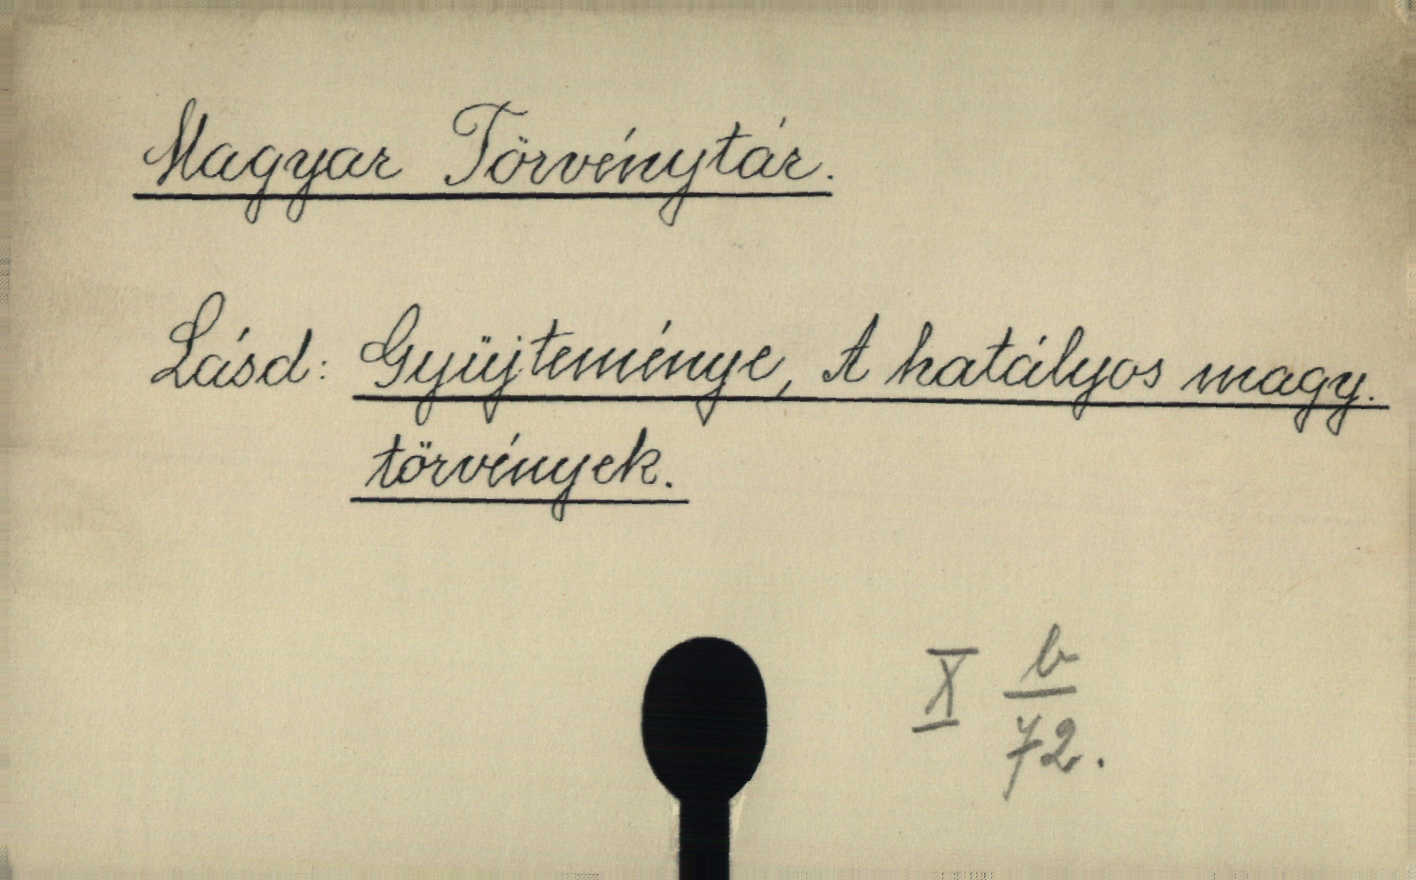 Magyar Törvénytár.
Lásd: Gyüjteménye, A hatályos magy.
törvények.
X b
72.